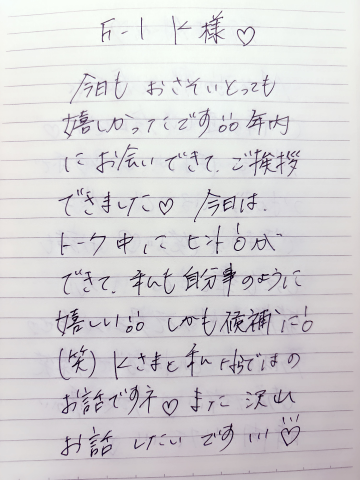 K様♡
今日も おさそいとっても
嬉しかったです 年内
に お会いできて、ご挨拶
できました♡ 今日は、
トーク中に ヒントが
できて、私も自分事のように
嬉しい しかも候補に
(笑) Kさまと私 ではの
お話ですネ♡ また 沢山
お話 したい です ♡